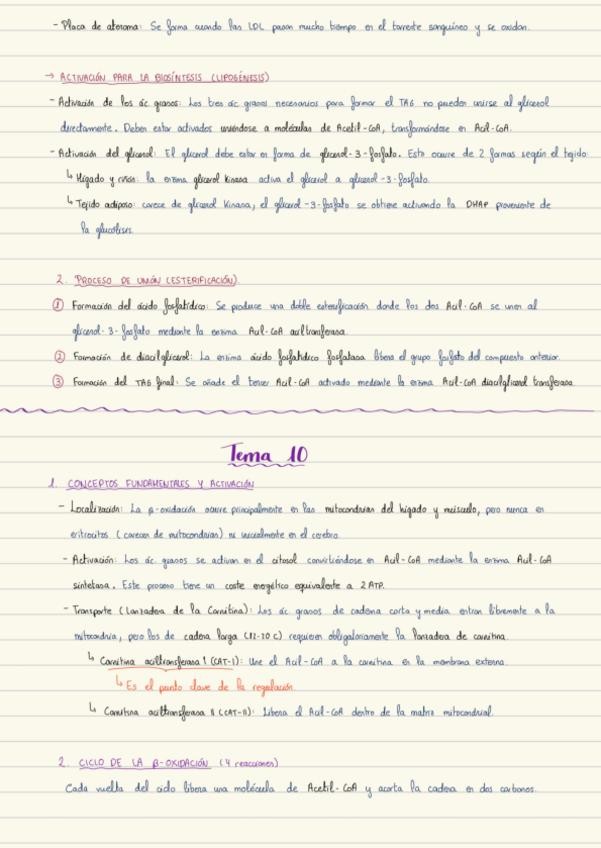 - Placa de ateroma: Se forma cuando las LDL pasan mucho tiempo en el torrente sanguíneo y se oxidan.
→ ACTIVACIÓN PARA LA BIOSÍNTESIS (LIPOGÉNESIS)
- Activación de los ác. grasos: Los tres ác grasos necesarios para formar el TAG no pueden unirse al glicerol
directamente. Deben estar activados uniéndose a moléculas de Acetil-CoA, transformándose en Acil-CoA.
- Activación del glicerol: El glicerol debe estar en forma de glicerol-3-fosfato. Esto ocurre de 2 formas según el tejido:
↳ Hígado y riñón: la enzima glicerol Kinasa activa el glicerol a glicerol-3-fosfato.
↳ Tejido adiposo: carece de glicerol Kinasa, el glicerol-3-fosfato se obtiene activando la DHAP proveniente de
la glucólisis.
2. PROCESO DE UNIÓN (ESTERIFICACIÓN).
① Formación del ácido fosfatídico: Se produce una doble esterificación donde los dos Acil-CoA se unen al
glicerol-3-fosfato mediante la enzima Acil-CoA aciltransferasa.
② Formación de diacilglicerol: La enzima ácido fosfatídico fosfatasa libera el grupo fosfato del compuesto anterior.
③ Formación del TAG final: Se añade el tercer Acil-CoA activado mediante la enzima Acil-CoA diacilglicerol transferasa.
Tema 10
1. CONCEPTOS FUNDAMENTALES Y ACTIVACIÓN
- Localización: La β-oxidación ocurre principalmente en las mitocondrias del hígado y músculo, pero nunca en
eritrocitos (carecen de mitocondrias) ni inicialmente en el cerebro.
- Activación: Los ác. grasos se activan en el citosol convirtiéndose en Acil-CoA mediante la enzima Acil-CoA
sintetasa. Este proceso tiene un coste energético equivalente a 2 ATP.
- Transporte (Lanzadera de la Carnitina): Los ác. grasos de cadena corta y media entran libremente a la
mitocondria, pero los de cadena larga (12-20 C) requieren obligatoriamente la lanzadera de carnitina.
↳ Carnitina aciltransferasa I (CAT-I): Une el Acil-CoA a la carnitina en la membrana externa.
↳ Es el punto clave de la regulación.
↳ Carnitina aciltransferasa II (CAT-II): Libera el Acil-CoA dentro de la matriz mitocondrial.
2. CICLO DE LA β-OXIDACIÓN (4 reacciones)
Cada vuelta del ciclo libera una molécula de Acetil-CoA y acorta la cadena en dos carbonos.